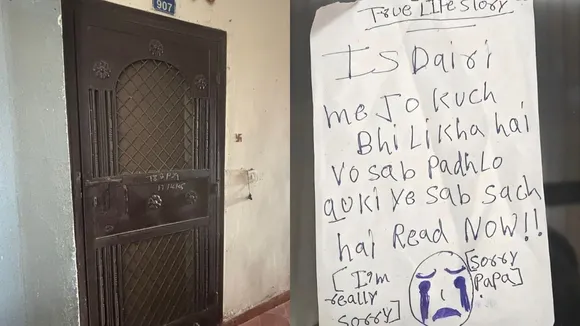 907
True Life story
IS Dairi
me Jo kuch
Bhi Likha hai
vo sab Padh Lo
quki ye sab sach
hai Read NOW!!
[I'm
really
sorry]
[sorry
Papa]